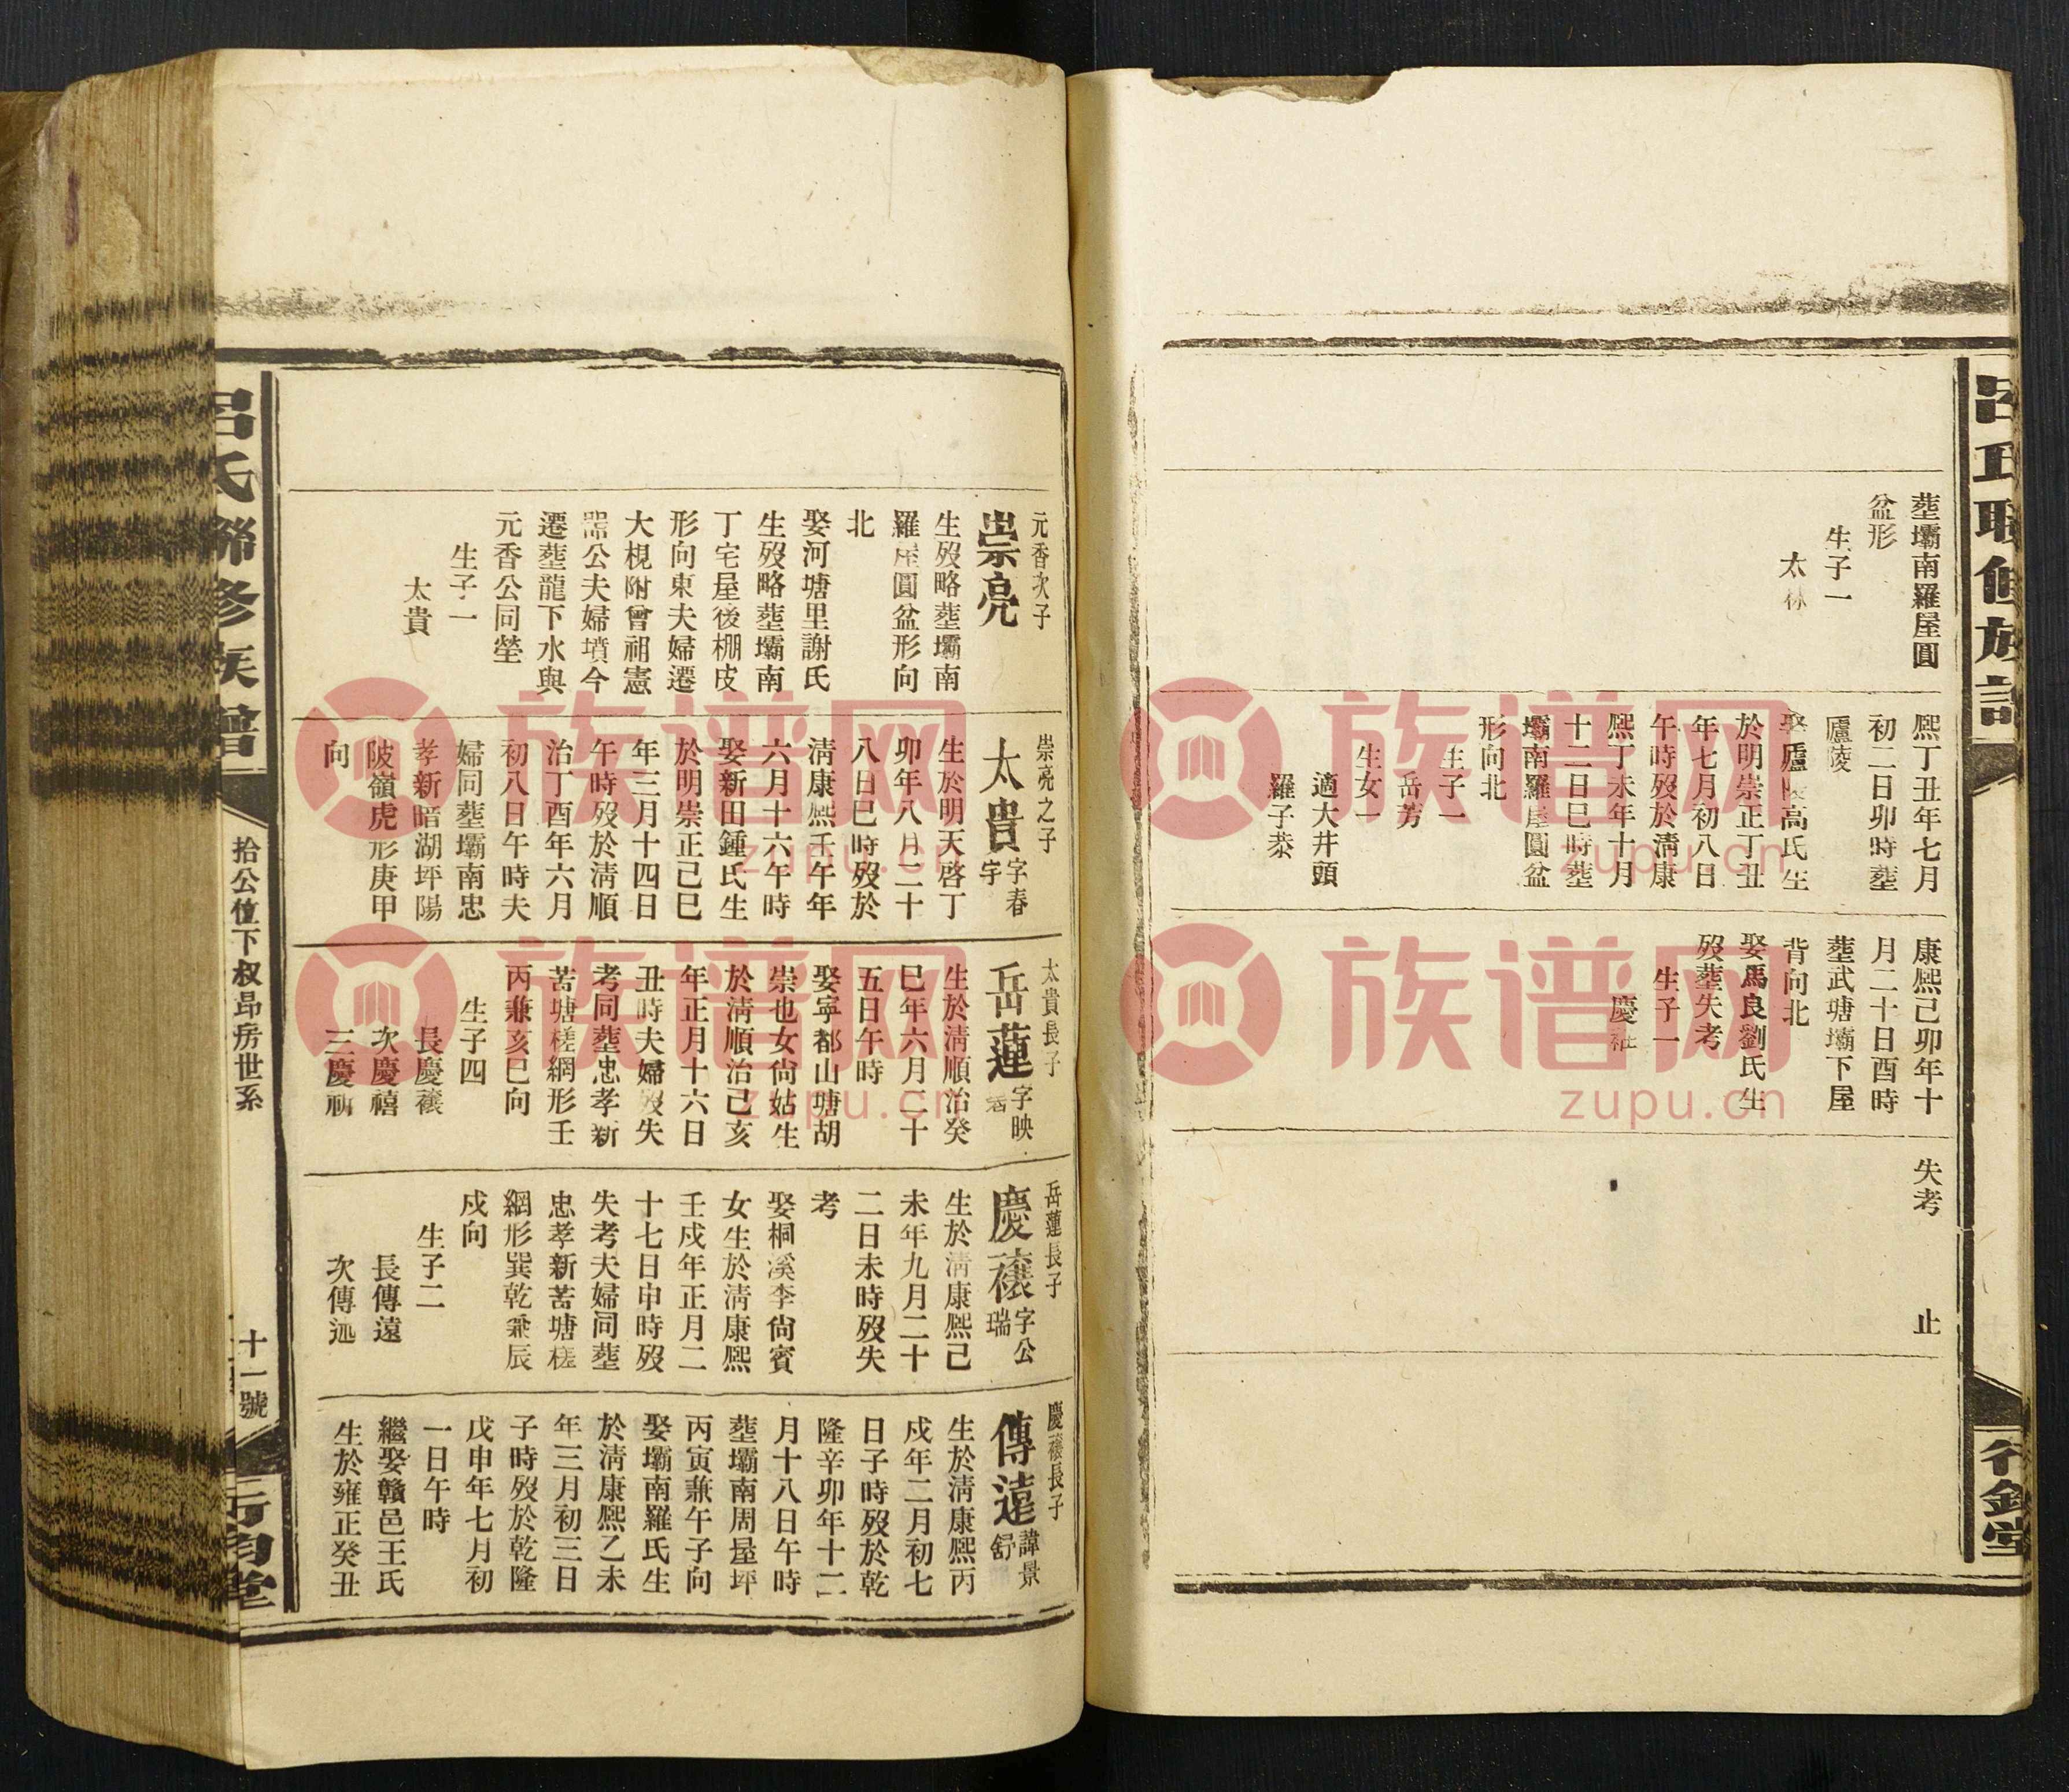 葬壩南羅屋圓
盆形
生子一
太
熙丁丑年七月
初二日卯時葬
廬陵
娶廬陵高氏生
於明崇正丁丑
年七月初八日
午時歿於清康
熙丁未年十月
十二日巳時葬
壩南羅屋圓盆
形向北
生子一
岳芳
生女一
適大井頭
羅子恭
康熙己卯年十
月二十日酉時
葬武塘壩下屋
背向北
娶馬良劉氏生
歿葬失考
生子一
慶
失考
止
元香次子
崇亮
生歿略葬壩南
羅屋圓盆形向
北
娶河塘里謝氏
生歿略葬壩南
丁宅屋後棚皮
形向東夫婦遷
大梘附曾祖憲
公夫婦墳今
遷葬龍下水與
元香公同塋
生子一
太貴
崇亮之子
太貴
字春
宇
生於明天啓丁
卯年八月二十
八日巳時歿於
清康熙壬午年
六月十六午時
娶新田鍾氏生
於明崇正己巳
年三月十四日
午時歿於清順
治丁酉年六月
初八日午時夫
婦同葬壩南忠
孝新暗湖坪陽
陂嶺虎形庚甲
向
太貴長子
岳蓮
字映
生於清順治癸
巳年六月二十
五日午時
娶寧都山塘胡
崇也女尙姑生
於清順治己亥
年正月十六日
丑時夫婦歿失
考同葬忠孝新
苦塘槎網形壬
丙兼亥巳向
生子四
長慶禳
次慶禧
三慶
岳蓮長子
慶禳
字公
瑞
生於清康熙己
未年九月二十
二日未時歿失
考
娶桐溪李尙賓
女生於清康熙
壬戌年正月二
十七日申時歿
失考夫婦同葬
忠孝新苦塘槎
網形巽乾兼辰
戌向
生子二
長傳遠
次傳
慶禳長子
傳遠
諱景
舒
生於清康熙丙
戌年二月初七
日子時歿於乾
隆辛卯年十二
月十八日午時
葬壩南周屋坪
丙寅兼午子向
娶壩南羅氏生
於清康熙乙未
年三月初三日
子時歿於乾隆
戊申年七月初
一日午時
繼娶贛邑王氏
生於雍正癸丑
呂氏聯修族譜
拾公位下叔昂房世系
十一號
族谱网
zupu.cn
族谱网
zupu.cn
族谱网
zupu.cn
族谱网
zupu.cn